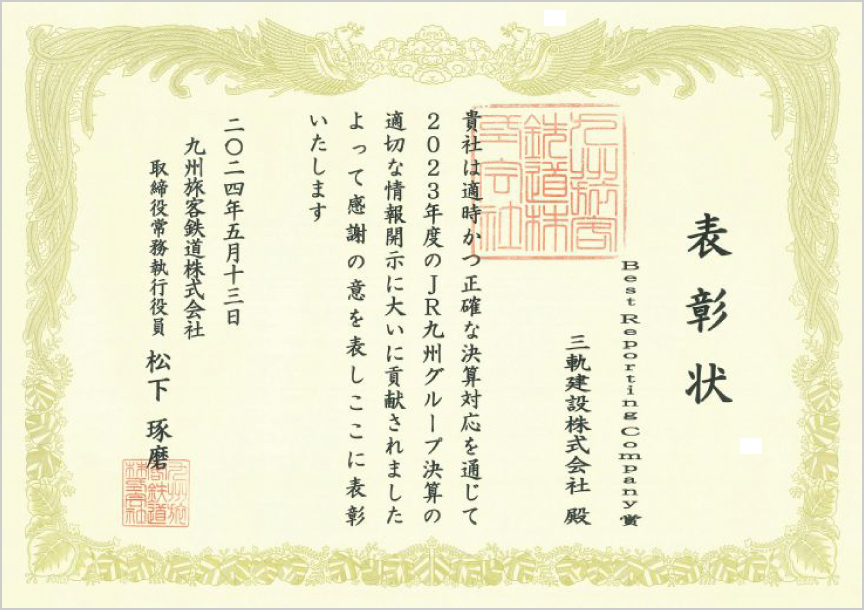 表彰状
Best Reporting Company賞
三軌建設株式会社 殿
貴社は適時かつ正確な決算対応を通じて
2023年度のJR九州グループ決算の
適切な情報開示に大いに貢献されました
よって感謝の意を表しここに表彰
いたします
二〇二四年五月十三日
九州旅客鉄道株式会社
取締役常務執行役員 松下 琢磨
九州旅客
鉄道株
式会社
九州旅
客鉄道
株式会社